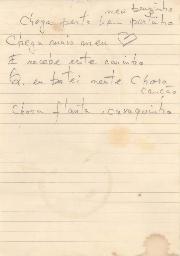 meu benzinho
Chega perto bem pertinho
Chega mais meu
E recebe este carinho
eu botei neste Chora
canção
Chora flauta, cavaquinho